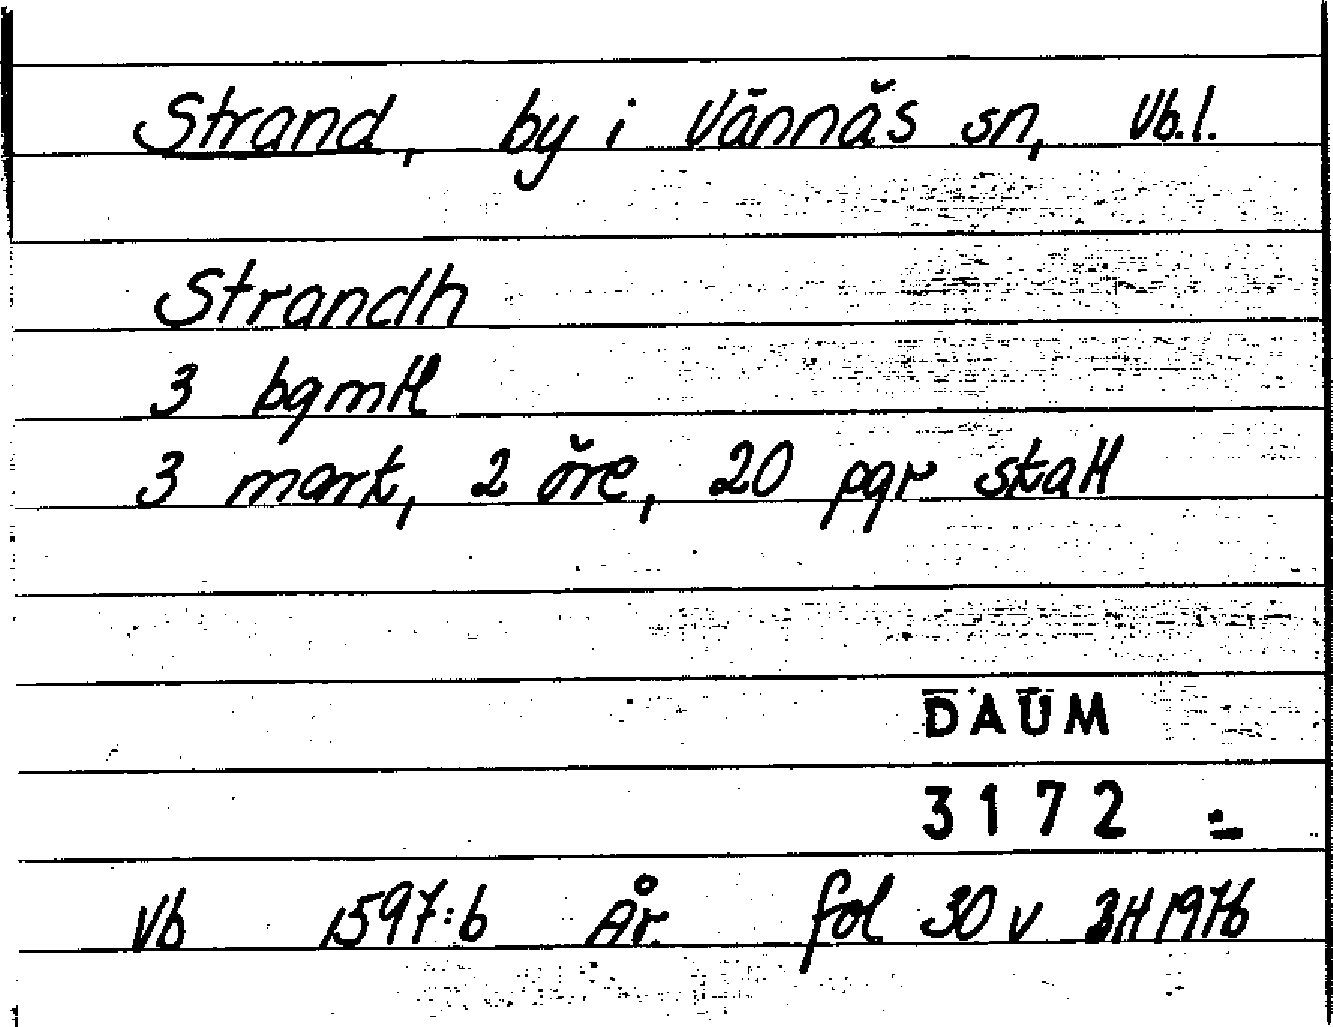 Strand, by i Vännäs sn, Vb.l.
Strandh
3 bgmtl
3 mark, 2 öre, 20 pgr skatt
DAUM
3172
Vb 1597:6 År. fol 30 v BH 1976